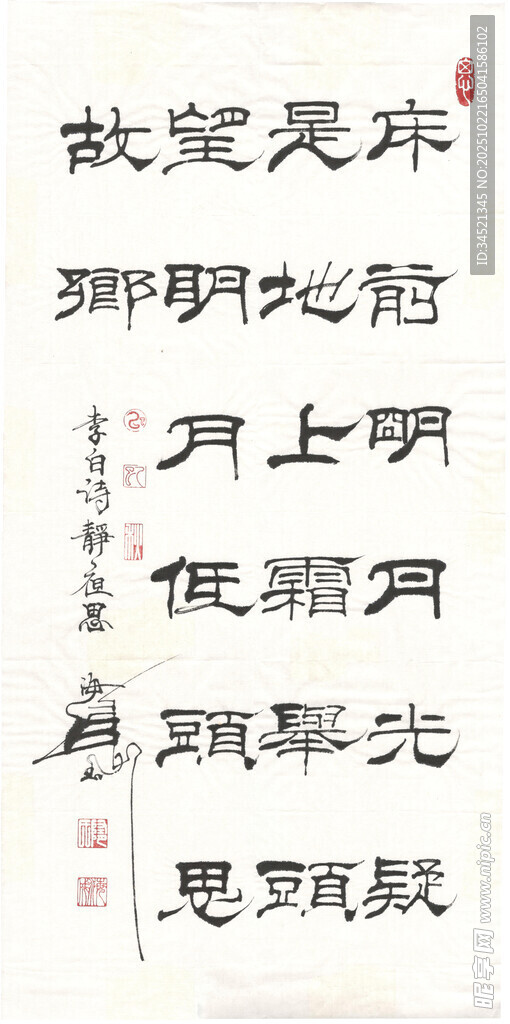 床前明月光疑
是地上霜舉頭
望明月低頭思
故鄉
李白诗靜夜思
海
ID:34521345 NO:20251022165041586102
昵享网 www.nipic.cn